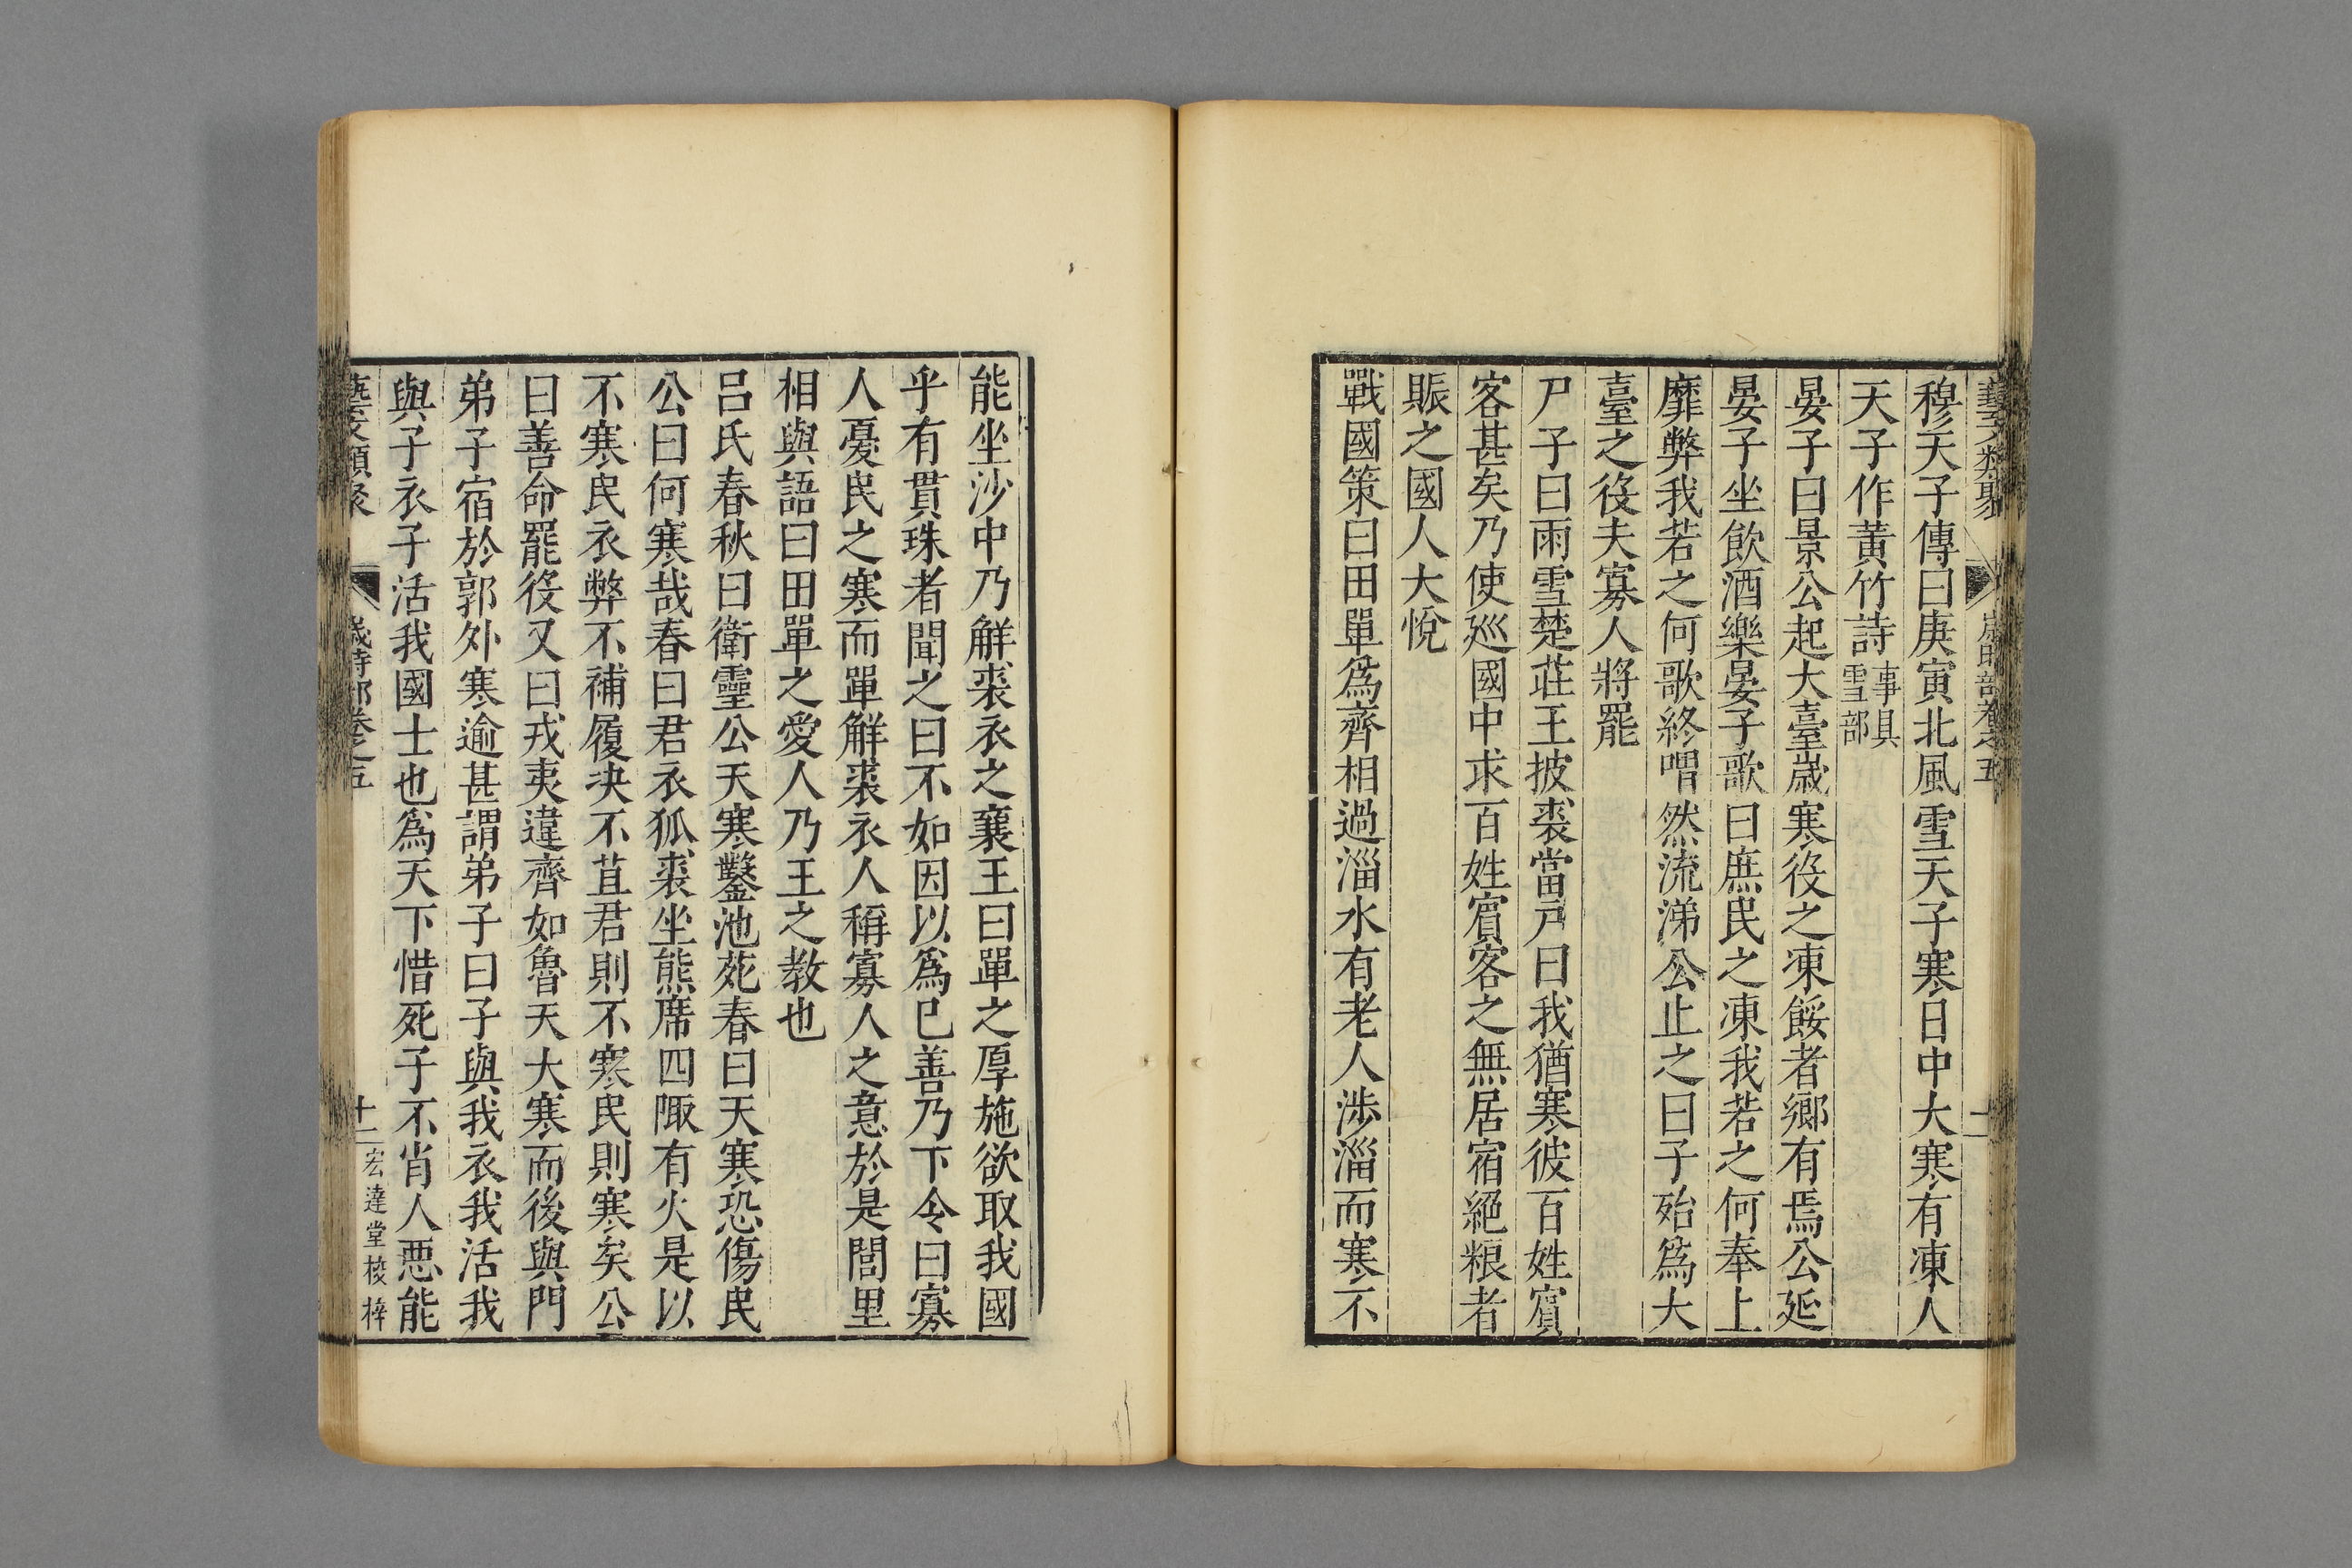 穆天子傳曰庚寅北風雪天子寒日中大寒有凍人
天子作黃竹詩事具雪部
晏子曰景公起大臺歲寒役之凍餒者鄉有焉公延
晏子坐飲酒樂晏子歌曰庶民之凍我若之何奉上
靡弊我若之何歌終喟然流涕公止之曰子殆爲大
臺之役夫寡人將罷
尸子曰雨雪楚莊王披裘當戸曰我猶寒彼百姓賔
客甚矣乃使廵國中求百姓賔客之無居宿絕粮者
賑之國人大悅
戰國策曰田單爲齊相過淄水有老人渉淄而寒不
能坐沙中乃觧裘衣之襄王曰單之厚施欲取我國
乎有貫珠者聞之曰不如因以爲已善乃下令曰寡
人憂民之寒而單觧裘衣人稱寡人之意於是閭里
相與語曰田單之愛人乃王之教也
呂氏春秋曰衛靈公天寒鑿池苑春曰天寒恐傷民
公曰何寒哉春曰君衣狐裘坐熊席四陬有火是以
不寒民衣弊不補履决不苴君則不寒民則寒矣公
曰善命罷役又曰戎夷違齊如魯天大寒而後與門
弟子宿於郭外寒逾甚謂弟子曰子與我衣我活我
與子衣子活我國士也爲天下惜死子不肖人惡能
藝文類聚
歲時部卷之五
十二
宏達堂校梓